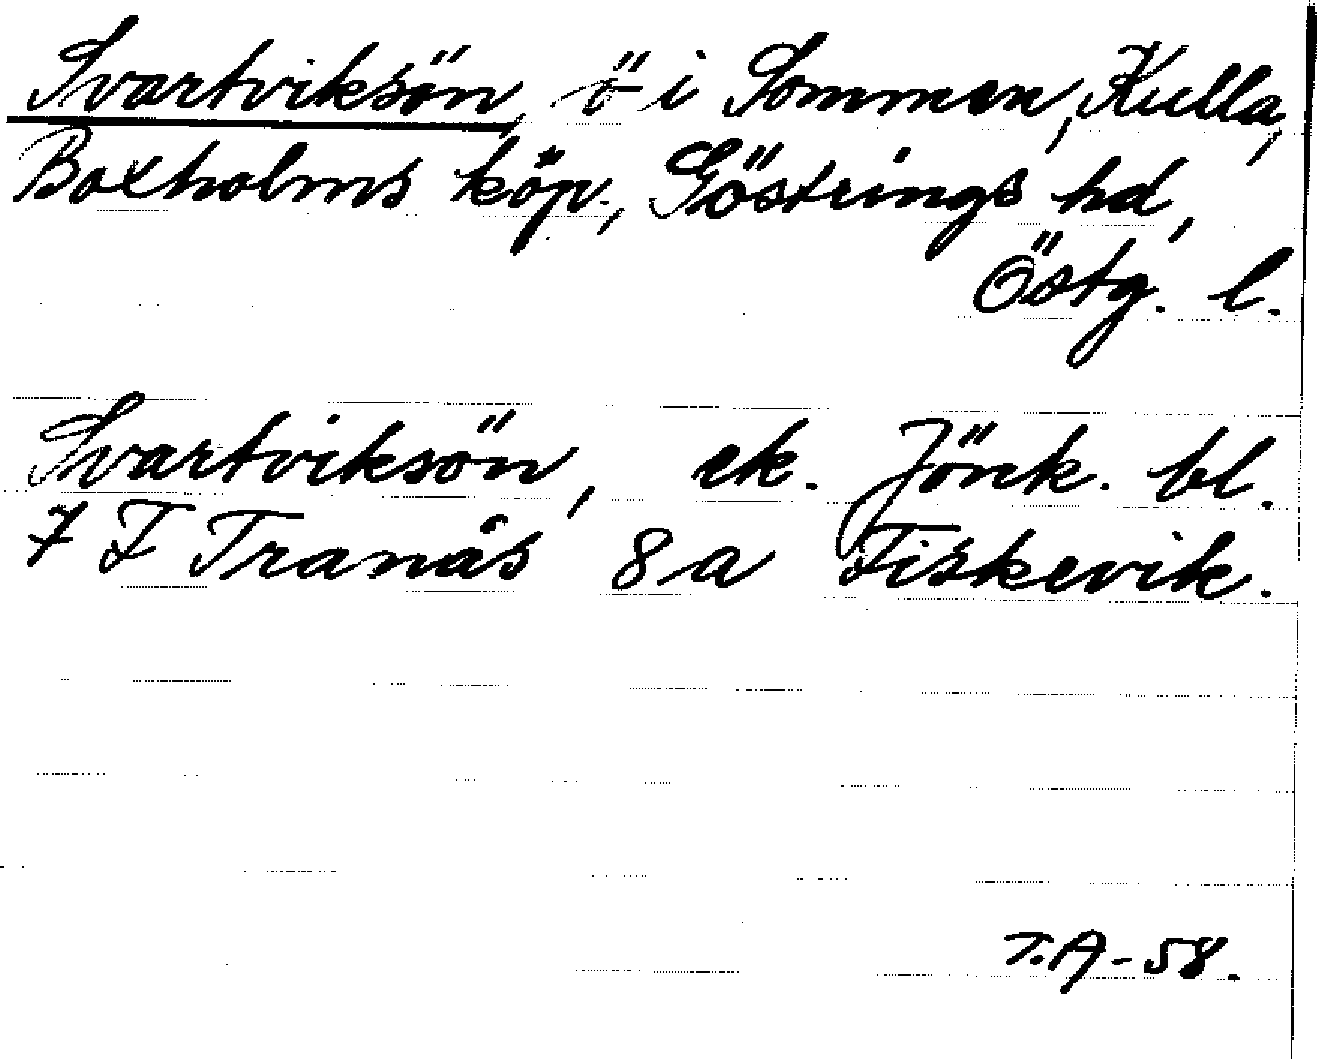 Svartviksön, ö i Sommen, Kulla,
Boxholms köp., Göstrings hd,
Östg. l.
Svartviksön, ek. Jönk. bl.
7 F Tranås 8 a Fiskevik.
T.A-58.